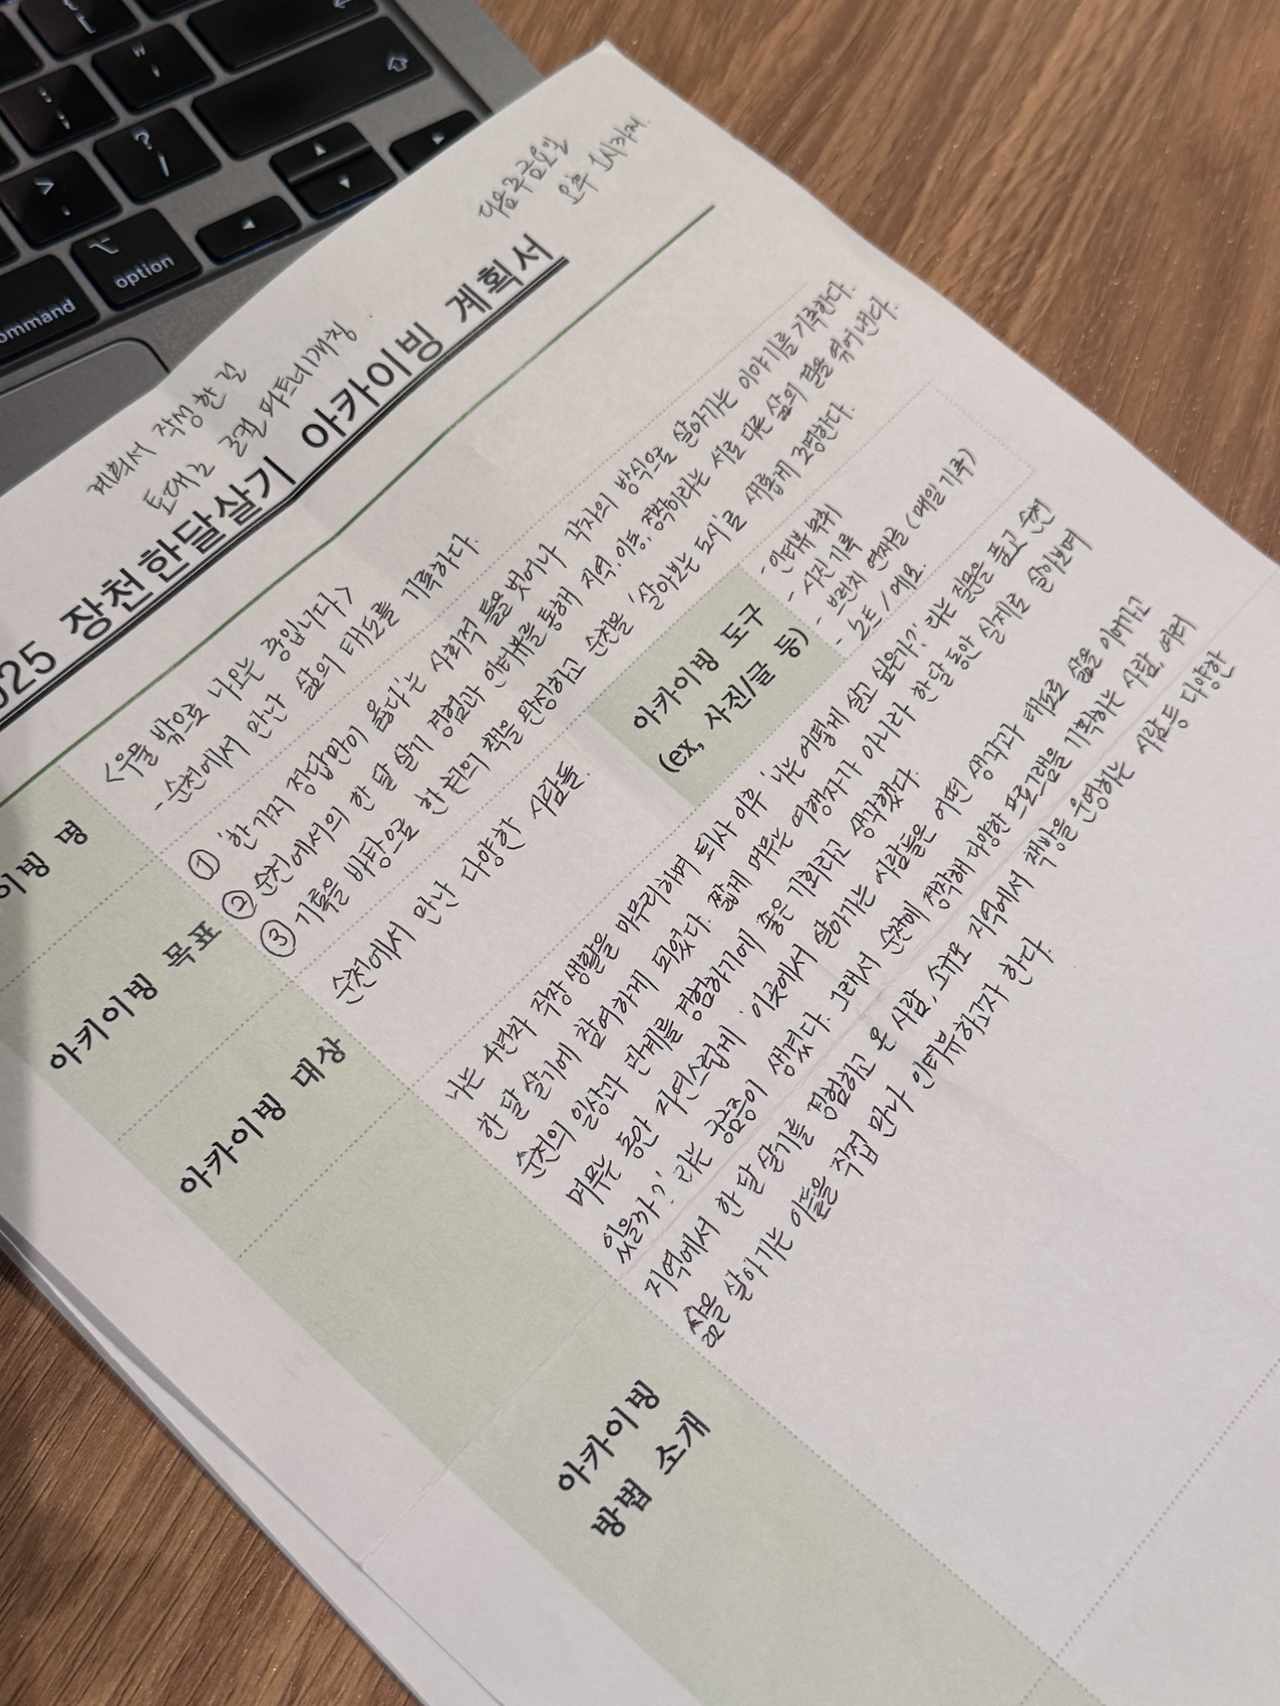 option
command
다음주 금요일
오후 1시까지
계획서 작성한 걸
토대로 로컬 파트너 매칭
025 장천한달살기 아카이빙 계획서
이빙 명
<우물 밖으로 나오는 중입니다>
- 순천에서 만난 삶의 태도를 기록하다.
아카이빙 목표
① '한 가지 정답만이 옳다'는 사회적 틀을 벗어나 각자의 방식으로 살아가는 이야기를 기록한다.
② 순천에서의 한 달 살기 경험과 인터뷰를 통해 지역, 이동, 정착이라는 서로 다른 삶의 결을 엮어낸다.
③ 기록을 바탕으로 한 권의 책을 완성하고 순천을 '살아보는 도시'로 새롭게 조명한다.
아카이빙 대상
순천에서 만난 다양한 사람들.
아카이빙 도구
(ex, 사진/글 등)
- 인터뷰 녹취
- 사진 기록
- 브런치 연재글 (매일 기록)
- 노트 / 메모.
아카이빙
방법 소개
나는 4년차 직장 생활을 마무리하며 퇴사 이후 '나는 어떻게 살고 싶은가?' 라는 질문을 품고 순천
한 달 살기에 참여하게 되었다. 짧게 머무는 여행자가 아니라 한 달 동안 실제로 살아보며
순천의 일상과 관계를 경험하기에 좋은 기회라고 생각했다.
머무는 동안 자연스럽게 '이곳에서 살아가는 사람들은 어떤 생각과 태도로 삶을 이어가고
있을까?' 라는 궁금증이 생겼다. 그래서 순천에 정착해 다양한 프로그램을 기획하는 사람, 여러
지역에서 한 달 살기를 경험하고 온 사람, 소규모 지역에서 책방을 운영하는 사람 등 다양한
삶을 살아가는 이들을 직접 만나 인터뷰하고자 한다.